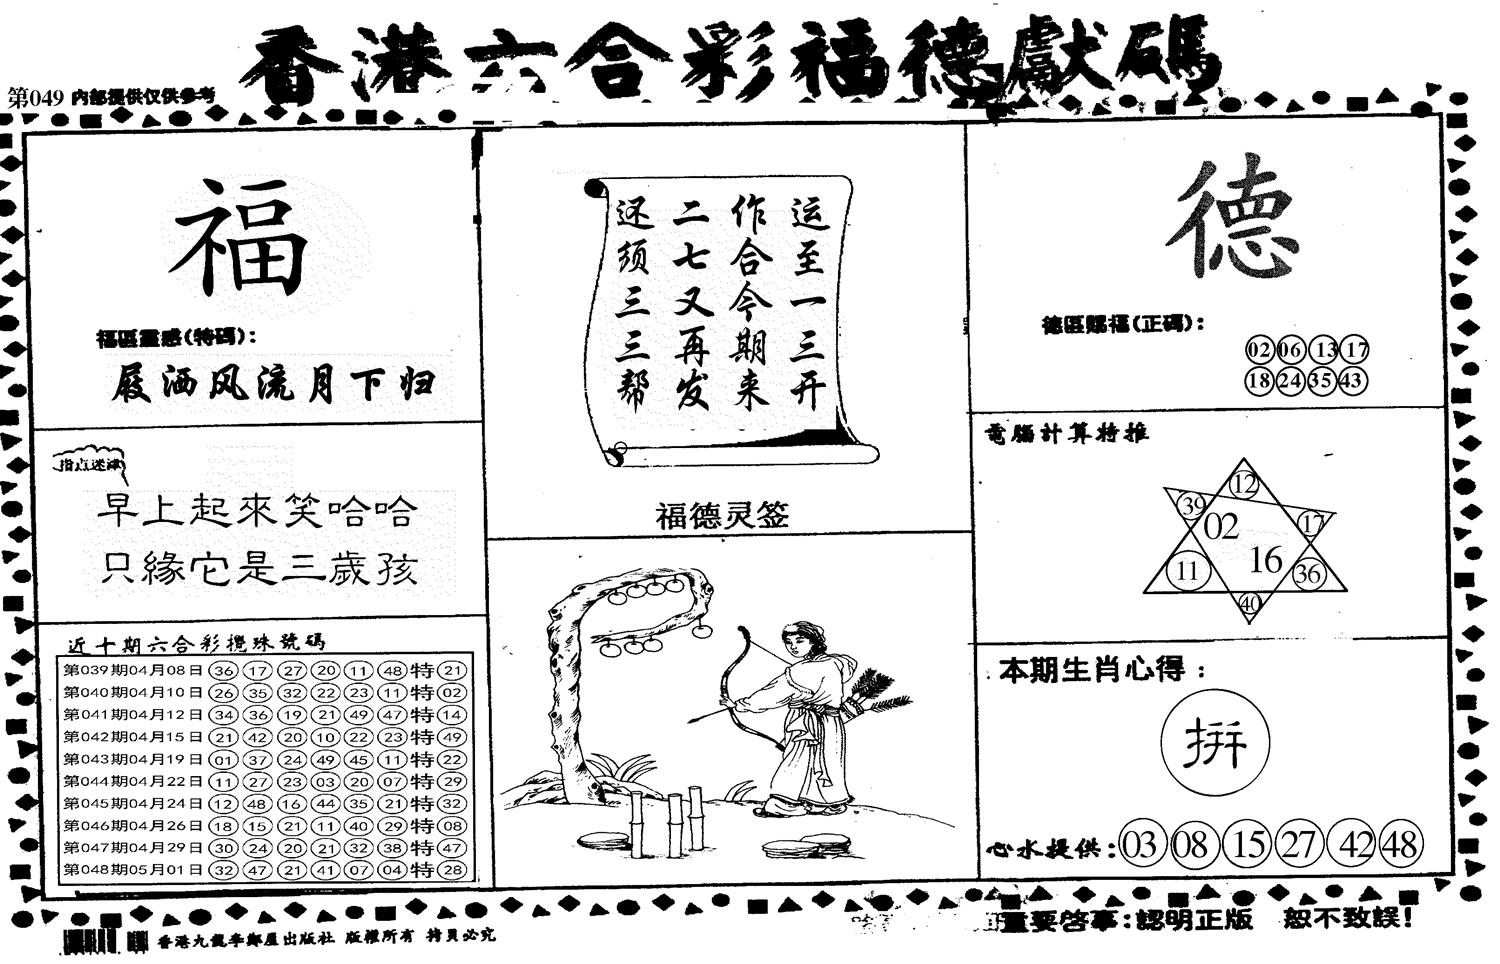 香港六合彩福德獻碼
第049 内部提供仅供参考
福
福區靈感(特碼):
屐洒风流月下归
指点迷津
早上起來笑哈哈
只緣它是三歲孩
近十期六合彩攪珠號碼
第039期04月08日 36 17 27 20 11 48 特 21
第040期04月10日 26 35 32 22 23 11 特 02
第041期04月12日 34 36 19 21 49 47 特 14
第042期04月15日 21 42 20 10 22 23 特 49
第043期04月19日 01 37 24 49 45 11 特 22
第044期04月22日 11 27 23 03 20 07 特 29
第045期04月24日 12 48 16 44 35 21 特 32
第046期04月26日 18 15 21 11 40 29 特 08
第047期04月29日 30 24 20 21 32 38 特 47
第048期05月01日 32 47 21 41 07 04 特 28
运至一三开
作合今期来
二七又再发
还须三三帮
福德灵签
德
德區賜福(正碼):
02 06 13 17
18 24 35 43
電腦計算特推
12
39
02
17
16
11
36
40
本期生肖心得:
拼
心水提供: 03 08 15 27 42 48
香港九龍李鄭屋出版社 版權所有 拷貝必究
重要啓事:認明正版 恕不致誤!